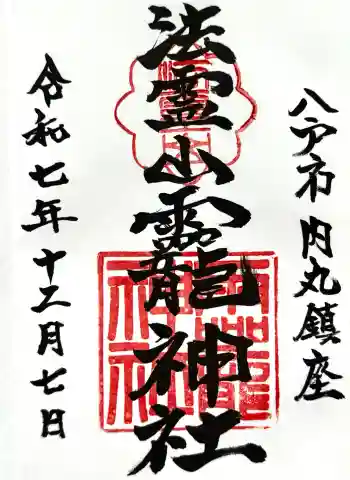 八戸市内丸鎮座
法霊山龗神社
令和七年十二月七日